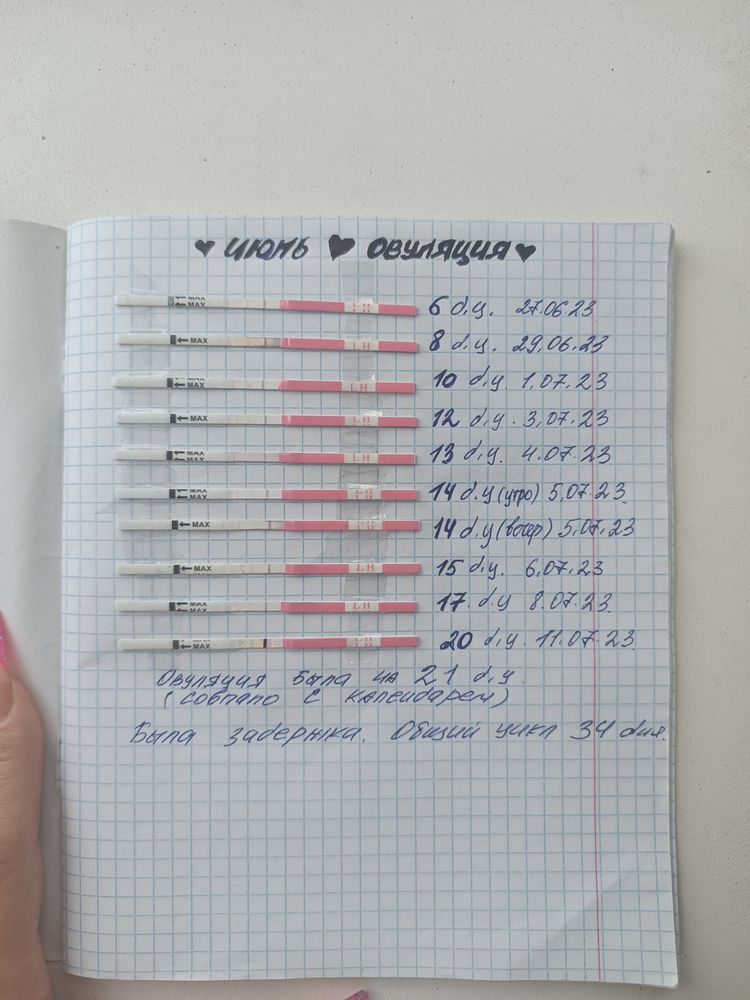 ♥ ИЮНЬ ♥ ОВУЛЯЦИЯ ♥
MAX MAX LH LH 6 д.ц. 27.06.23
MAX LH 8 д.ц. 29.06.23
MAX LH 10 д.ц. 1.07.23
MAX LH 12 д.ц. 3.07.23
MAX MAX LH 13 д.ц. 4.07.23
MAX MAX LH LH 14 д.ц (утро) 5.07.23
MAX LH 14 д.ц (вечер) 5.07.23
MAX LH 15 д.ц. 6.07.23
MAX MAX LH 17. д.ц 8.07.23
MAX LH LH 20 д.ц. 11.07.23
Овуляция была на 21 д.ц.
(совпало с календарем)
Была задержка. Общий цикл 34 дня.